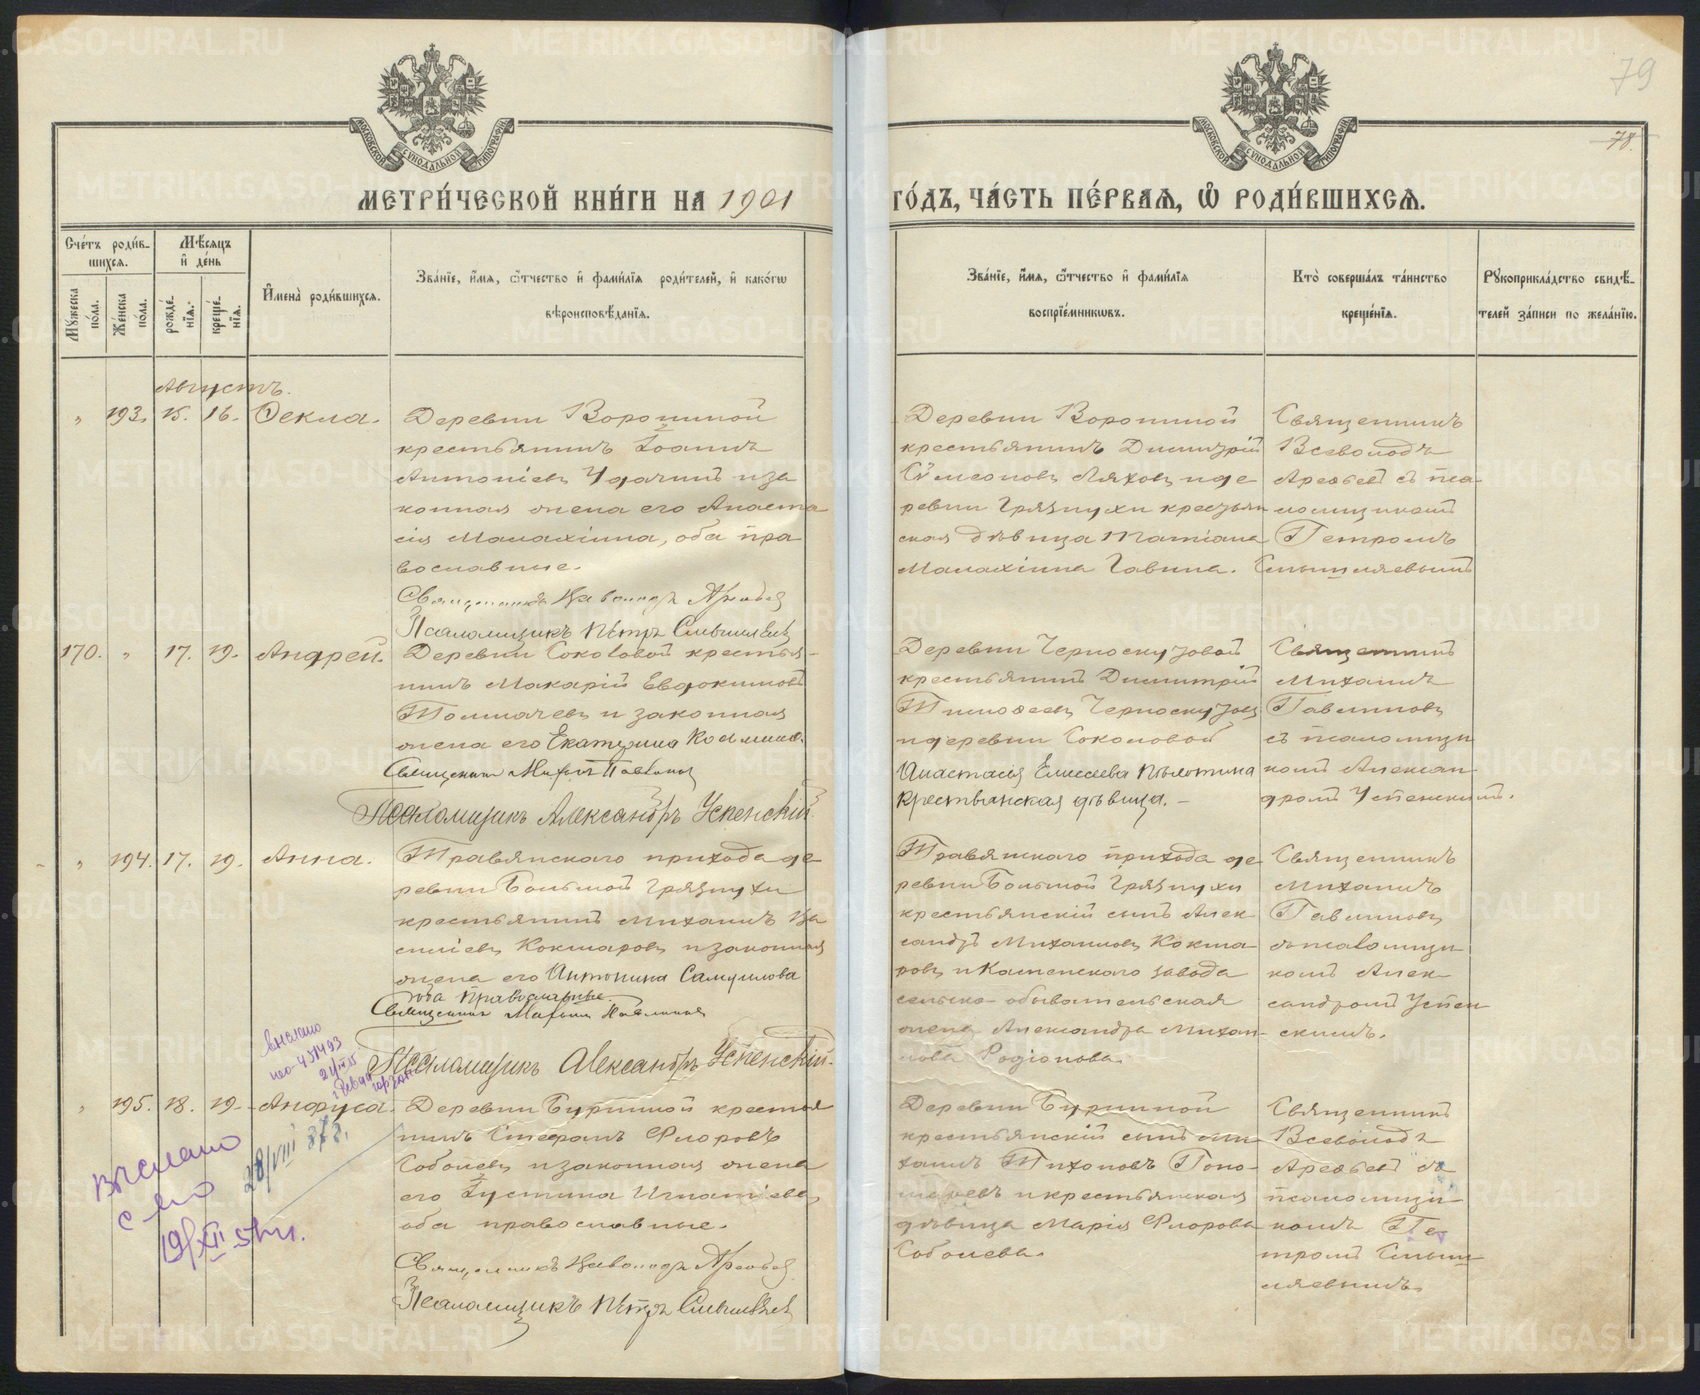 79
78.
МЕТРИ́ЧЕСКОЙ КНИ́ГИ НА 1901
ГО́ДЪ, ЧА́СТЬ ПЕ́РВАѦ, Ѽ РОДИ́ВШИХСѦ.
МОСКОВСКОЙ СѴНОДАЛЬНОЙ ТИПОГРАФІИ
МОСКОВСКОЙ СѴНОДАЛЬНОЙ ТИПОГРАФІИ
Сче́тъ роди́в-
шихсѧ.
Мѣ́сѧцъ
и҆ де́нь
Мꙋ́жеска по́ла.
Же́нска по́ла.
рожде́-
нїѧ.
креще́-
нїѧ.
И҆мена̀ роди́вшихсѧ.
Зва́нїе, и҆́мѧ, ѻ҆́тчество и҆ фами́лїѧ роди́телей, и҆ како́гѡ
вѣроисповѣ́данїѧ.
Зва́нїе, и҆́мѧ, ѻ҆́тчество и҆ фами́лїѧ
воспрїе́мникѡвъ.
Кто̀ соверша́лъ та́инство
креще́нїѧ.
Рꙋкоприкла́дство свидѣ́-
телей за́писи по жела́нїю.
Августъ.
" 193. 15. 16. Ѳекла.
Деревни Ворониной
крестьянинъ Іоаннъ
Антоніевъ Удачинъ и за
конная жена его Анаста
сія Малахіина, оба пра
вославные.
Священникъ Всеволодъ Арефьевъ
Псаломщикъ Петръ Смышляевъ
Деревни Ворониной
крестьянинъ Димитрій
Сѵмеоновъ Ляховъ и де
ревни Грязнухи крестьян
ская дѣвица Татіана
Малахіина Гавина.
Священникъ
Всеволодъ
Арефьевъ съ пса
ломщикомъ
Петромъ
Смышляевымъ
170. " 17. 19. Андрей.
Деревни Соколовой крестья-
нинъ Макарій Евдокимовъ
Толмачевъ и законная
жена его Екатерина Космина.
Священникъ Михаилъ Павлиновъ
Псаломщикъ Александръ Успенскій
Деревни Черноскутовой
крестьянинъ Димитрій
Тимоѳеевъ Черноскутовъ
и деревни Соколовой
Анастасія Елисеева
крестьянская дѣвица. -
Священникъ
Михаилъ
Павлиновъ
съ псаломщи
комъ Алексан
дромъ Успенскимъ.
" 194. 17. 19. Анна.
Травянскаго прихода де
ревни Большой Грязнухи
крестьянинъ Михаилъ Ва
силіевъ Кокшаровъ и законная
жена его Антонина Самуилова
оба православные.
Священникъ Михаилъ Павлиновъ
Псаломщикъ Александръ Успенскій.
Травянскаго прихода де
ревни Большой Грязнухи
крестьянскій сынъ Алек
сандръ Михаиловъ Кокша
ровъ и Каменскаго завода
сельско-обывательская
жена Александра Михаи-
лова Родіонова.
Священникъ
Михаилъ
Павлиновъ
съ псаломщи
комъ Алек
сандромъ Успен
скимъ.
" 195. 18. 19. Андруса.
Деревни Буриной крестья
нинъ Стефанъ Флоровъ
Соболевъ и законная жена
его Іустина Игнатіева,
оба православные.
Священникъ Всеволодъ Арефьевъ
Псаломщикъ Петръ Смышляевъ
Деревни Буриной
крестьянскій сынъ Ми
хаилъ Тихоновъ Поно-
маревъ и крестьянская
дѣвица Марія Флорова
Соболева.
Священникъ
Всеволодъ
Арефьевъ съ
псаломщи
комъ Пе
тромъ Смыш
ляевымъ.
выслано
выслано
с-во
19/XII 51 г.